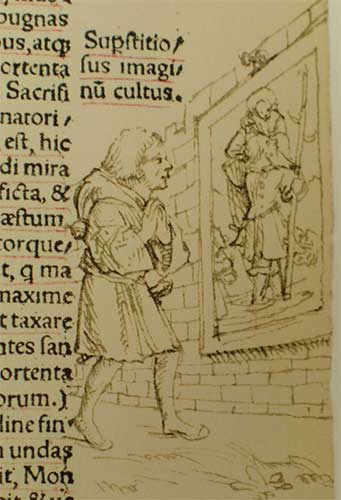 pugnas
bus, atq;
ortenta
Sacrifi
natori/
est, hic
di mira
ficta, &
æstum
torque/
t, q ma
maxime
t taxare
ntes san
ortenta
orum.)
dine fin/
m undas
it, Mon
Supstitio/
sus imagi/
nū cultus.